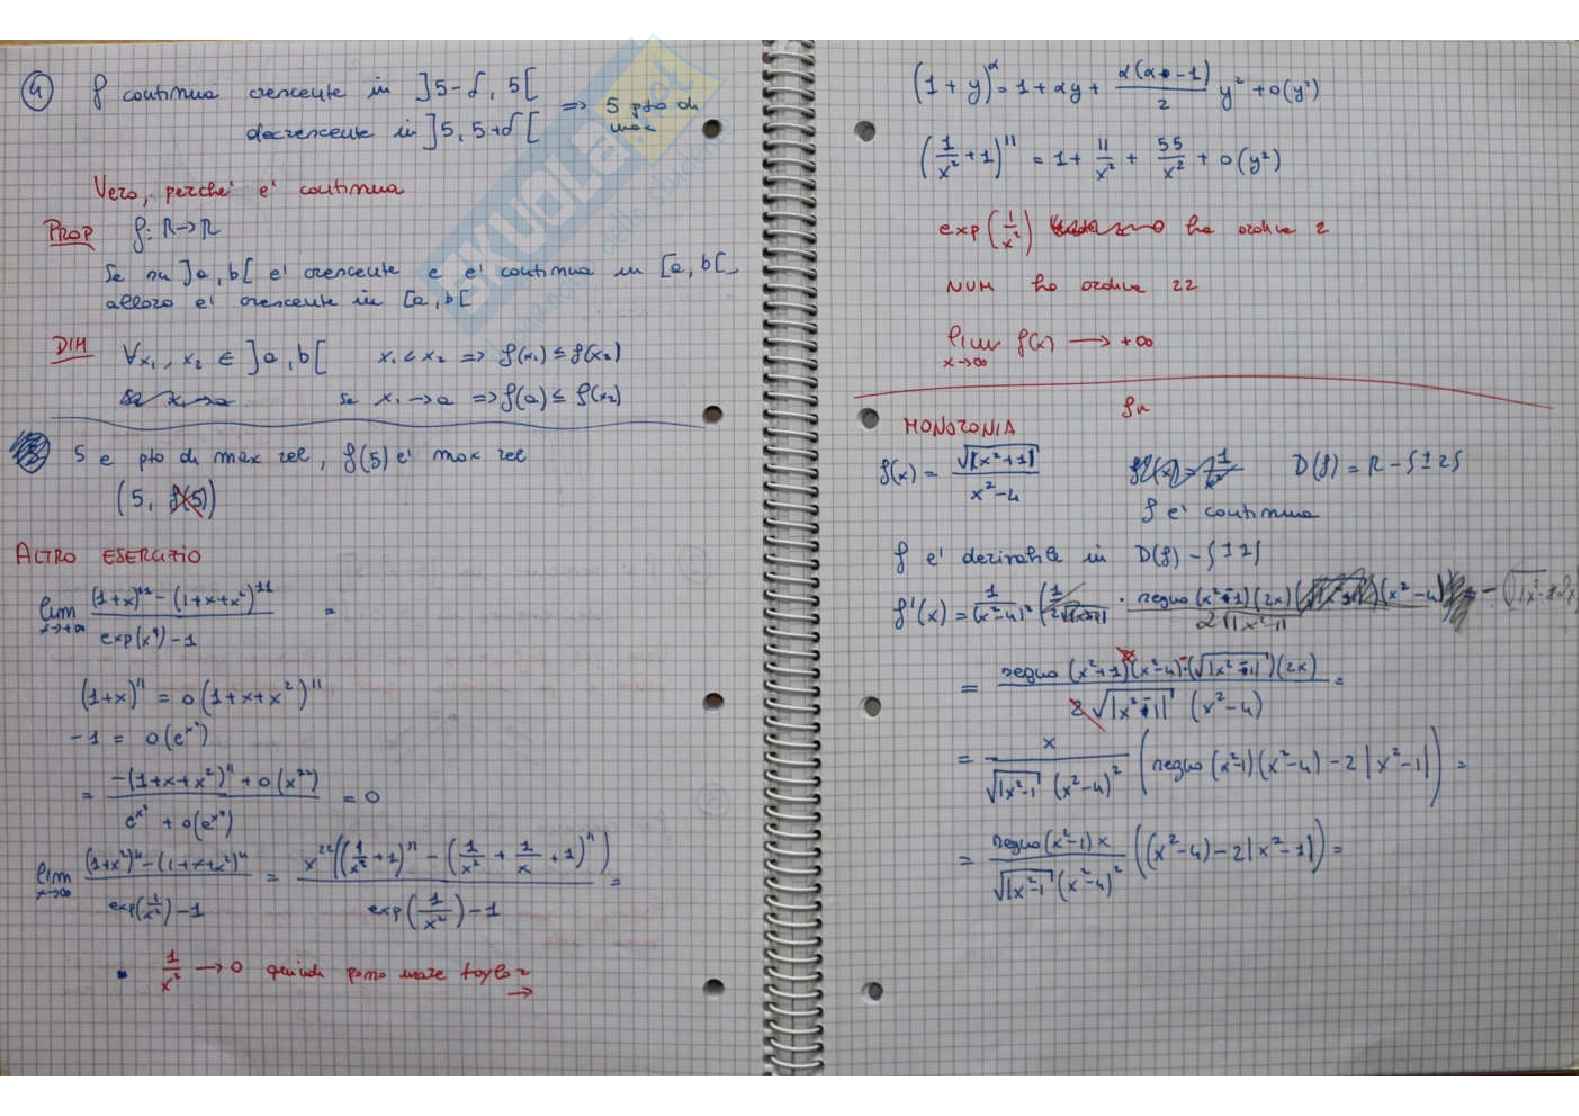 4 f continua crescente in ]5-δ, 5[
decrescente in ]5, 5+δ[ => 5 pto di max
Vero, perche' e' continua
PROP f: R→R
Se in ]a, b[ e' crescente e e' continua in [a, b[,
allora e' crescente in [a, b[
DIM ∀x₁, x₂ ∈ ]a, b[ x₁ < x₂ => f(x₁) ≤ f(x₂)
se x₁ → a => f(a) ≤ f(x₂)
5 e pto di max rel, f(5) e' max rel
(5, f(5))
ALTRO ESERCIZIO
lim x→+∞ ((1+x)²² - (1+x+x²)¹¹) / (exp(x⁴) - 1) =
(1+x)¹¹ = o(1+x+x²)¹¹
-1 = o(eˣ⁴)
= (-(1+x+x²)¹¹ + o(x²²)) / (eˣ⁴ + o(eˣ⁴)) = 0
lim x→∞ ((1+x²)¹¹ - (1+x+x²)¹¹) / (exp(1/x²) - 1) = x²²((1/x² + 1)¹¹ - (1/x² + 1/x + 1)¹¹) / (exp(1/x²) - 1) =
1/x² → 0 quindi posso usare taylor →
(1+y)^α = 1 + αy + α(α-1)/2 y² + o(y²)
(1/x² + 1)¹¹ = 1 + 11/x² + 55/x² + o(y²)
exp(1/x²) ha ordine 2
NUM ha ordine 22
lim x→∞ f(x) → +∞
MONOTONIA
f(x) = √|x²+1| / (x²-4) D(f) = R - {±2}
f e' continua
f e' derivabile in D(f) - {±1}
f'(x) = 1/(x²-4)² · segno(x²-1)(2x)(x²-4) / 2√|x²-1|
= (segno(x²+1)(x²-4) - (√|x²-1|)(2x)) / (2√|x²-1| (x²-4) =
= x / (√|x²-1| (x²-4)²) (segno(x²-1)(x²-4) - 2|x²-1|) =
= segno(x²-1)x / (√|x²-1| (x²-4)²) ((x²-4) - 2|x²-1|) =